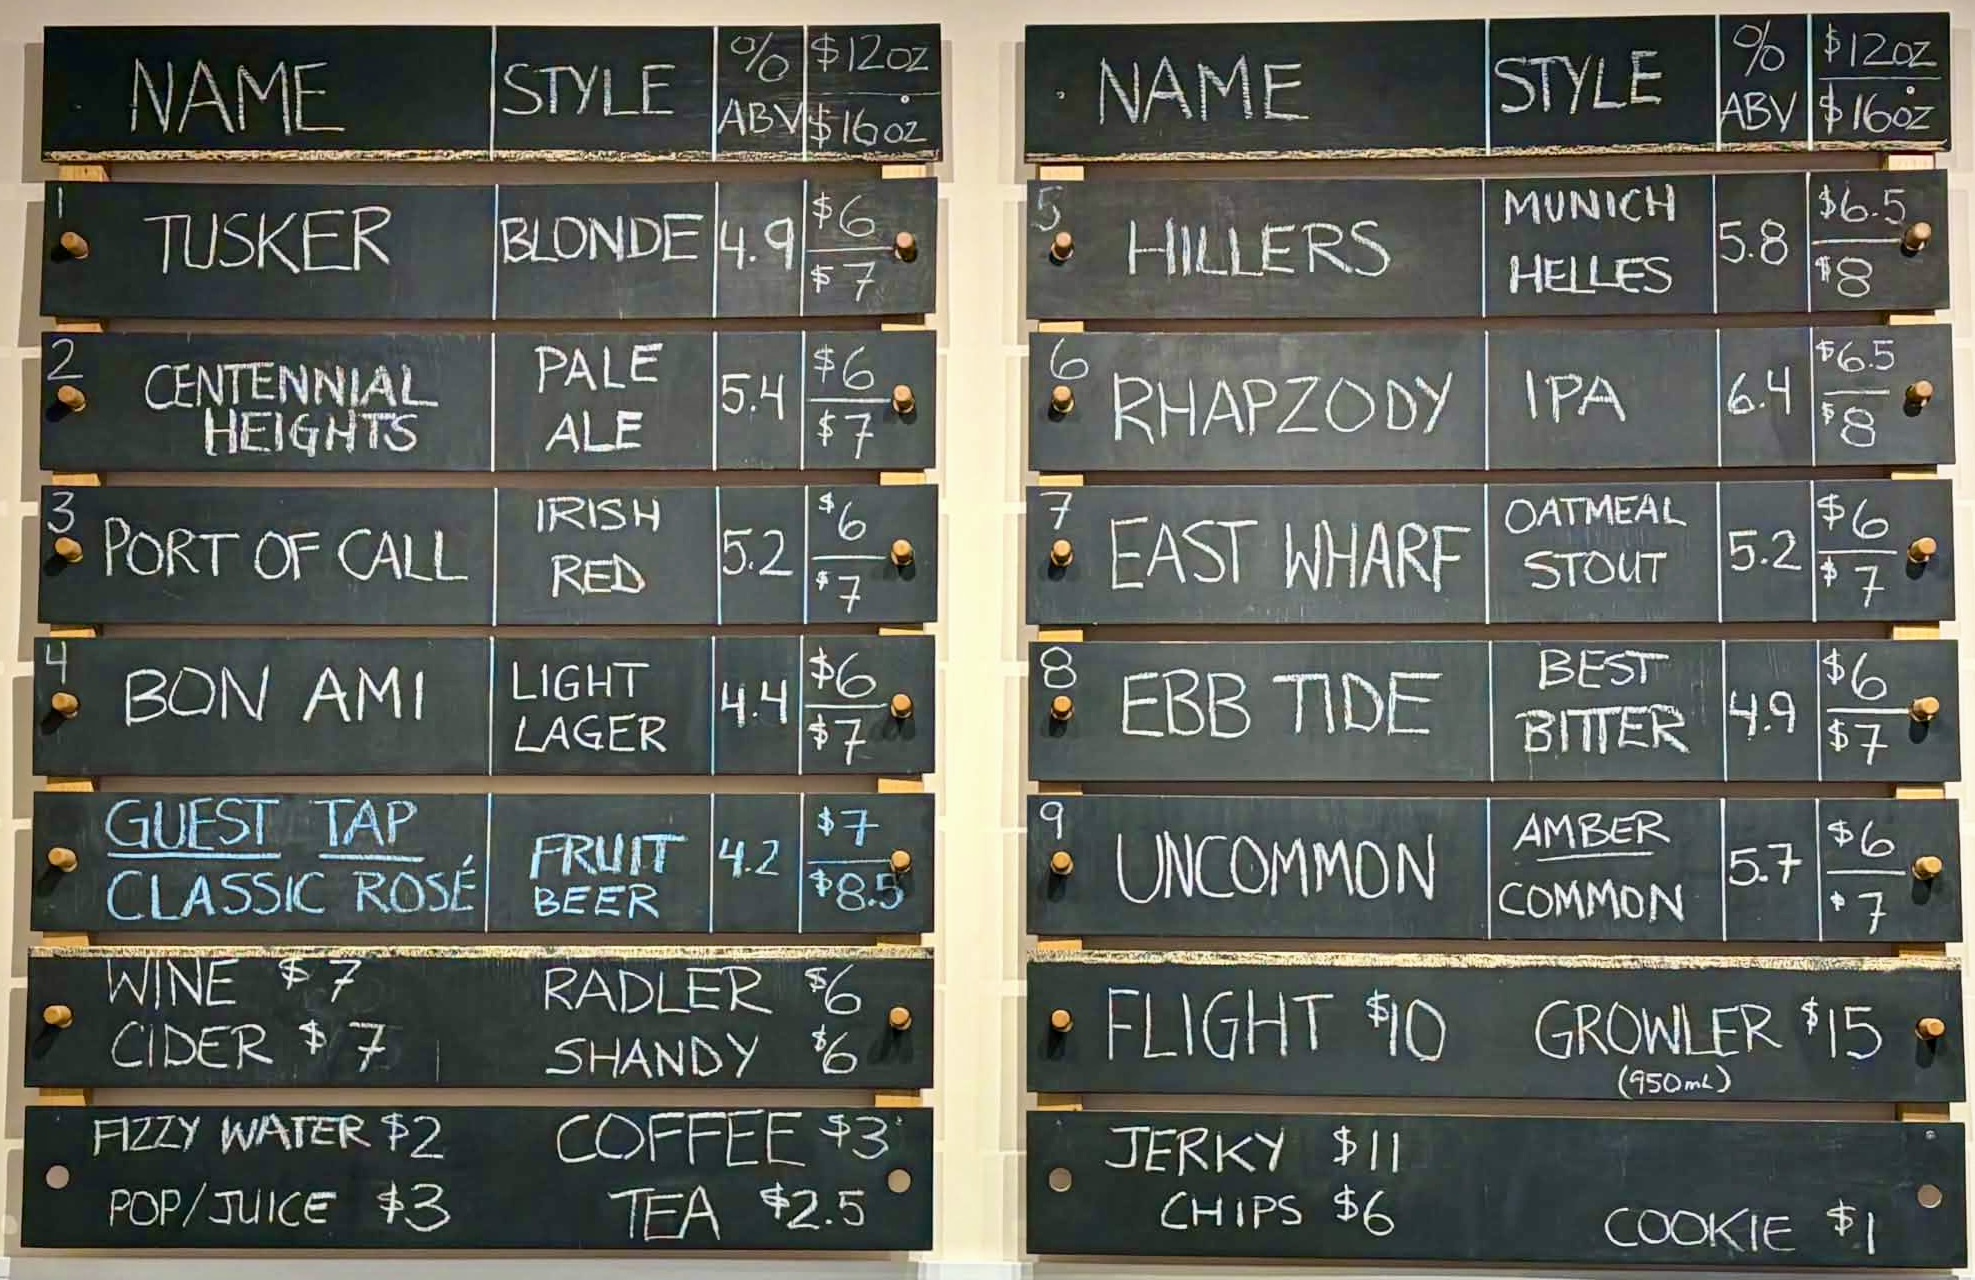 NAME STYLE % ABV $12oz $16oz
1 TUSKER BLONDE 4.9 $6 $7
2 CENTENNIAL HEIGHTS PALE ALE 5.4 $6 $7
3 PORT OF CALL IRISH RED 5.2 $6 $7
4 BON AMI LIGHT LAGER 4.4 $6 $7
GUEST TAP CLASSIC ROSÉ FRUIT BEER 4.2 $7 $8.5
WINE $7 RADLER $6
CIDER $7 SHANDY $6
FIZZY WATER $2 COFFEE $3
POP/JUICE $3 TEA $2.5
NAME STYLE % ABV $12oz $16oz
5 HILLERS MUNICH HELLES 5.8 $6.5 $8
6 RHAPZODY IPA 6.4 $6.5 $8
7 EAST WHARF OATMEAL STOUT 5.2 $6 $7
8 EBB TIDE BEST BITTER 4.9 $6 $7
9 UNCOMMON AMBER COMMON 5.7 $6 $7
FLIGHT $10 GROWLER $15
(950mL)
JERKY $11
CHIPS $6 COOKIE $1